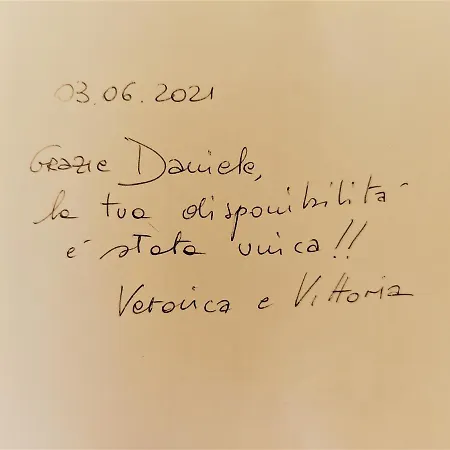 03.06.2021
Grazie Daniele,
la tua disponibilità
è stata unica!!
Veronica e Vittoria